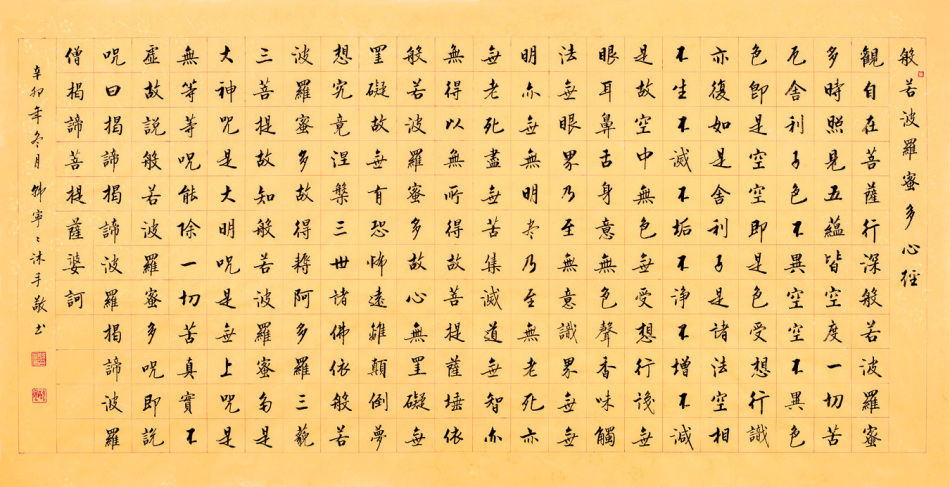 般若波羅蜜多心經
觀自在菩薩行深般若波羅蜜
多時照見五蘊皆空度一切苦
厄舍利子色不異空空不異色
色即是空空即是色受想行識
亦復如是舍利子是諸法空相
不生不滅不垢不淨不增不減
是故空中無色無受想行識無
眼耳鼻舌身意無色聲香味觸
法無眼界乃至無意識界無無
明亦無無明尽乃至無老死亦
無老死盡無苦集滅道無智亦
無得以無所得故菩提薩埵依
般若波羅蜜多故心無罣礙無
罣礙故無有恐怖遠離顛倒夢
想究竟涅槃三世諸佛依般若
波羅蜜多故得耨阿多羅三藐
三菩提故知般若波羅蜜多是
大神呪是大明呪是無上呪是
無等等呪能除一切苦真實不
虛故說般若波羅蜜多呪即說
呪曰揭諦揭諦波羅揭諦波羅
僧揭諦菩提薩婆訶
辛卯年冬月寧〻沐手敬书